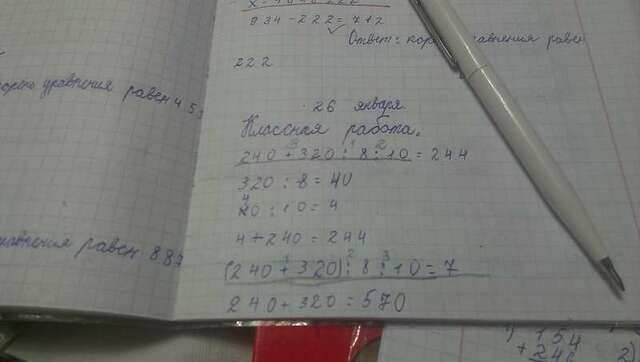 934 - 222 = 712
Ответ: уравнения равен
222
уравнения равен 45
26 января
Классная работа.
240 + 320 : 8 : 10 = 244
320 : 8 = 40
40 : 10 = 4
4 + 240 = 244
(240 + 320) : 8 : 10 = 7
равен 88
240 + 320 = 570
154
+ 244